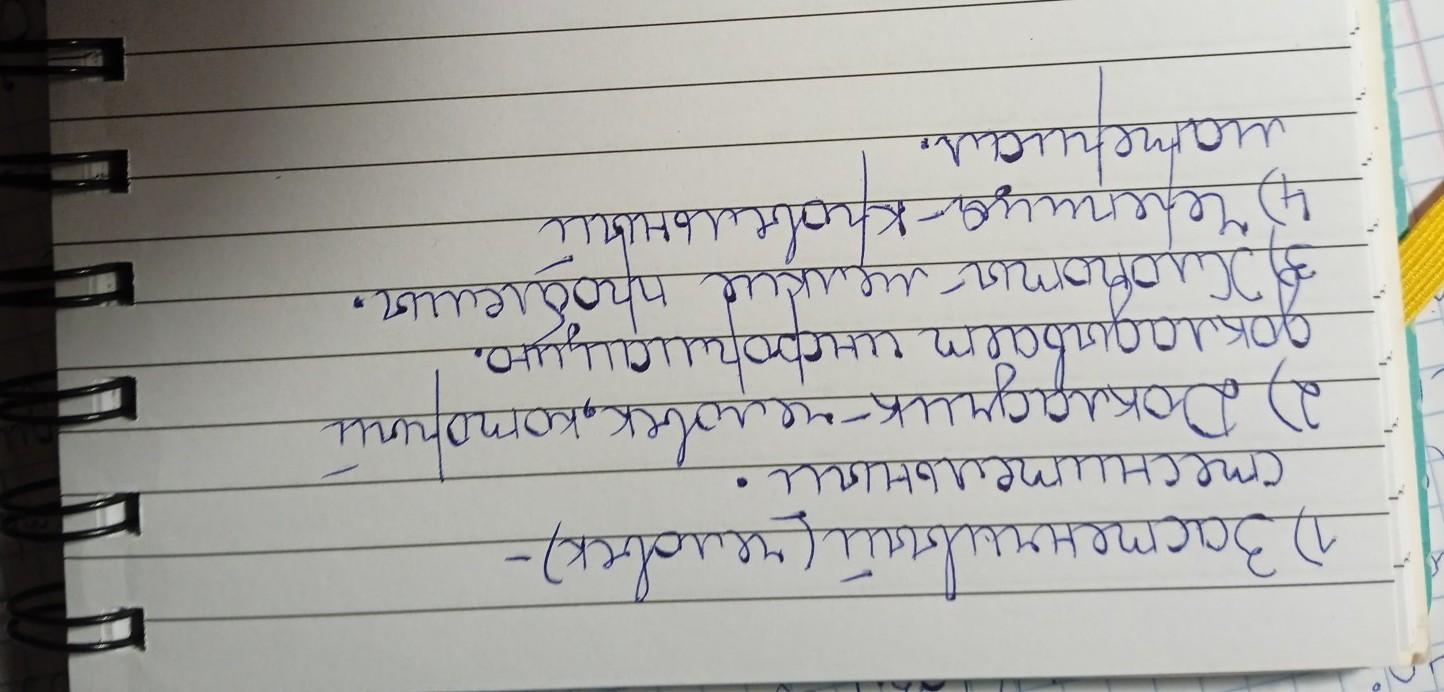 1) Застенчивый (человек) -
стеснительный.
2) Докладчик - человек, который
докладывает информацию.
3) Хлопоты - мелкие проблемы.
4) Черепица - кровельный
материал.